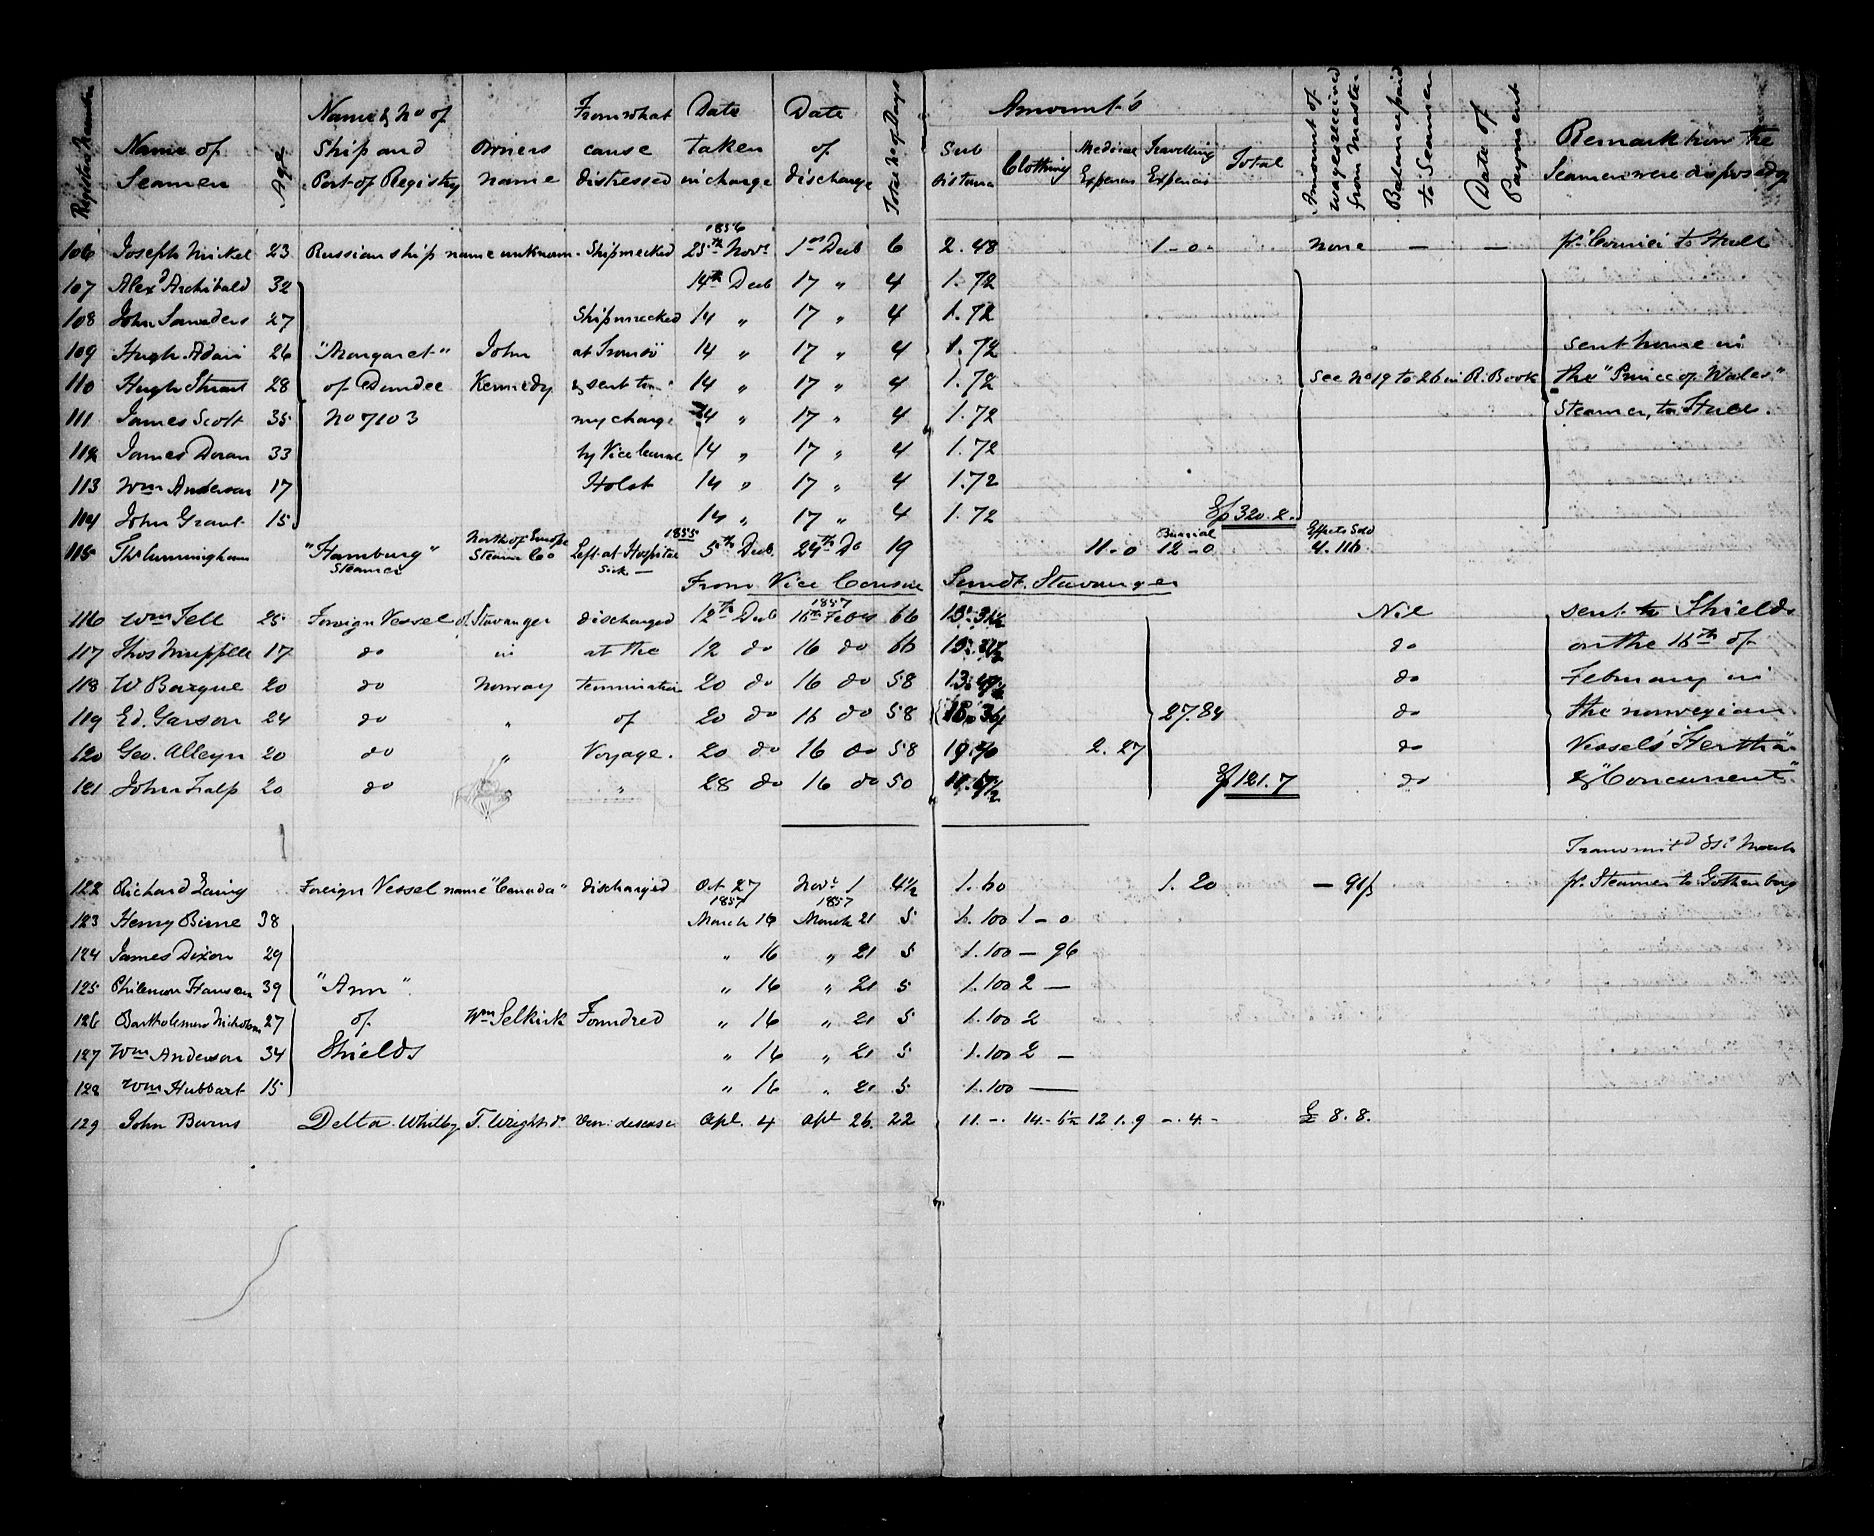 Register Number
Name of Seamen
Age
Name & No of Ship and Port of Registry
Owners name
From what cause distressed
Date taken in charge
Date of discharge
Total No of Days
Amount's
Subsistance
Clothing
Medical Expences
Travelling Expences
Total
Amount of wages received from Master
Balance paid to Seamen
Date of Payment
Remark how the Seamen were disposed of
106 Joseph Nickel 23 Russian ship name unknown Shipwrecked 1856 25th Novr 1st Decb 6 2.48 1-0- none — — pr Courier to Hull
107 Alexd Archibald 32 14th Decb 17 " 4 1.72
108 John Saunders 27 Shipwrecked 14 " 17 " 4 1.72
109 Hugh Adair 26 "Margaret" John at Tromsö 14 " 17 " 4 1.72 sent home in
110 Hugh Stuart 28 of Dundee Kennedy & sent to 14 " 17 " 4 1.72 See No 19 to 26 in R. Book the "Prince of Wales"
111 James Scott 35 No 7103 my charge 14 " 17 " 4 1.72 Steamer, to Hull.
112 James Doran 33 by Vice Consul 14 " 17 " 4 1.72
113 Wm Anderson 17 Holst 14 " 17 " 4 1.72
114 John Grant 15 14 " 17 " 4 1.72 320.2.
115 Ths Cunningham "Hamburg" Steamer North of Europe Steam Co Left at Hospital sick — 1855 5th Decb 24th Do 19 11-0 Burial 12-0 Effects Sold 4.116
From Vice Consul Stavanger
116 Wm Fell 25 Foreign Vessel of Stavanger discharged 12th Decb 1857 16th Feby 66 Nil sent to Shields
117 Thos 17 do in at the 12 do 16 do 66 do on the 16th of
118 W. Bargue 20 do Norway termination 20 do 16 do 58 do February in
119 Ed. Garson 24 do " of 20 do 16 do 58 27.84 do the norwegian
120 Geo. Alleyn 20 do " Voyage. 20 do 16 do 58 2.27 do Vessels "Hertha"
121 John Fralp 20 do " " 28 do 16 do 50 121.7 do & "Concurrent"
122 Richard Laing Foreign Vessel name "Canada" discharged Oct 27 Novr 1 4½ 1.60 1.20 pr Steamer to Gothenburg
123 Henry Birne 38 1857 March 16 1857 March 21 5 1.100 1-0
124 James Dixon 29 " 16 " 21 5 1.100 — 96
125 Philemon Hansen 39 "Ann" " 16 " 21 5 1.100 2 —
126 Bartholemew Nicholson 27 of Wm Selkirk Foundred " 16 " 21 5 1.100 2
127 Wm Anderson 34 Shields " 16 " 21 5 1.100 2 —
128 Wm Hubbart 15 " 16 " 21 5 1.100 —
129 John Burns Delta Whitby T. Wright Ven: disease Apl. 4 Apl 26. 22 11.-. 12 1.9 -.4.- £ 8.8.